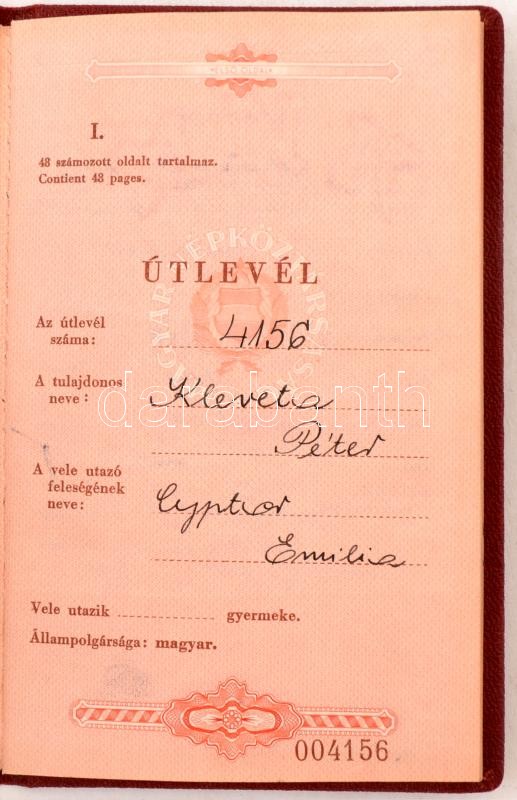 BELSŐ OLDALA
I.
48 számozott oldalt tartalmaz.
Contient 48 pages.
ÚTLEVÉL
Az útlevél
száma: 4156
A tulajdonos
neve: Kleveta
Péter
A vele utazó
feleségének
neve:
Emilia
Vele utazik gyermeke.
Állampolgársága: magyar.
004156
darabanth